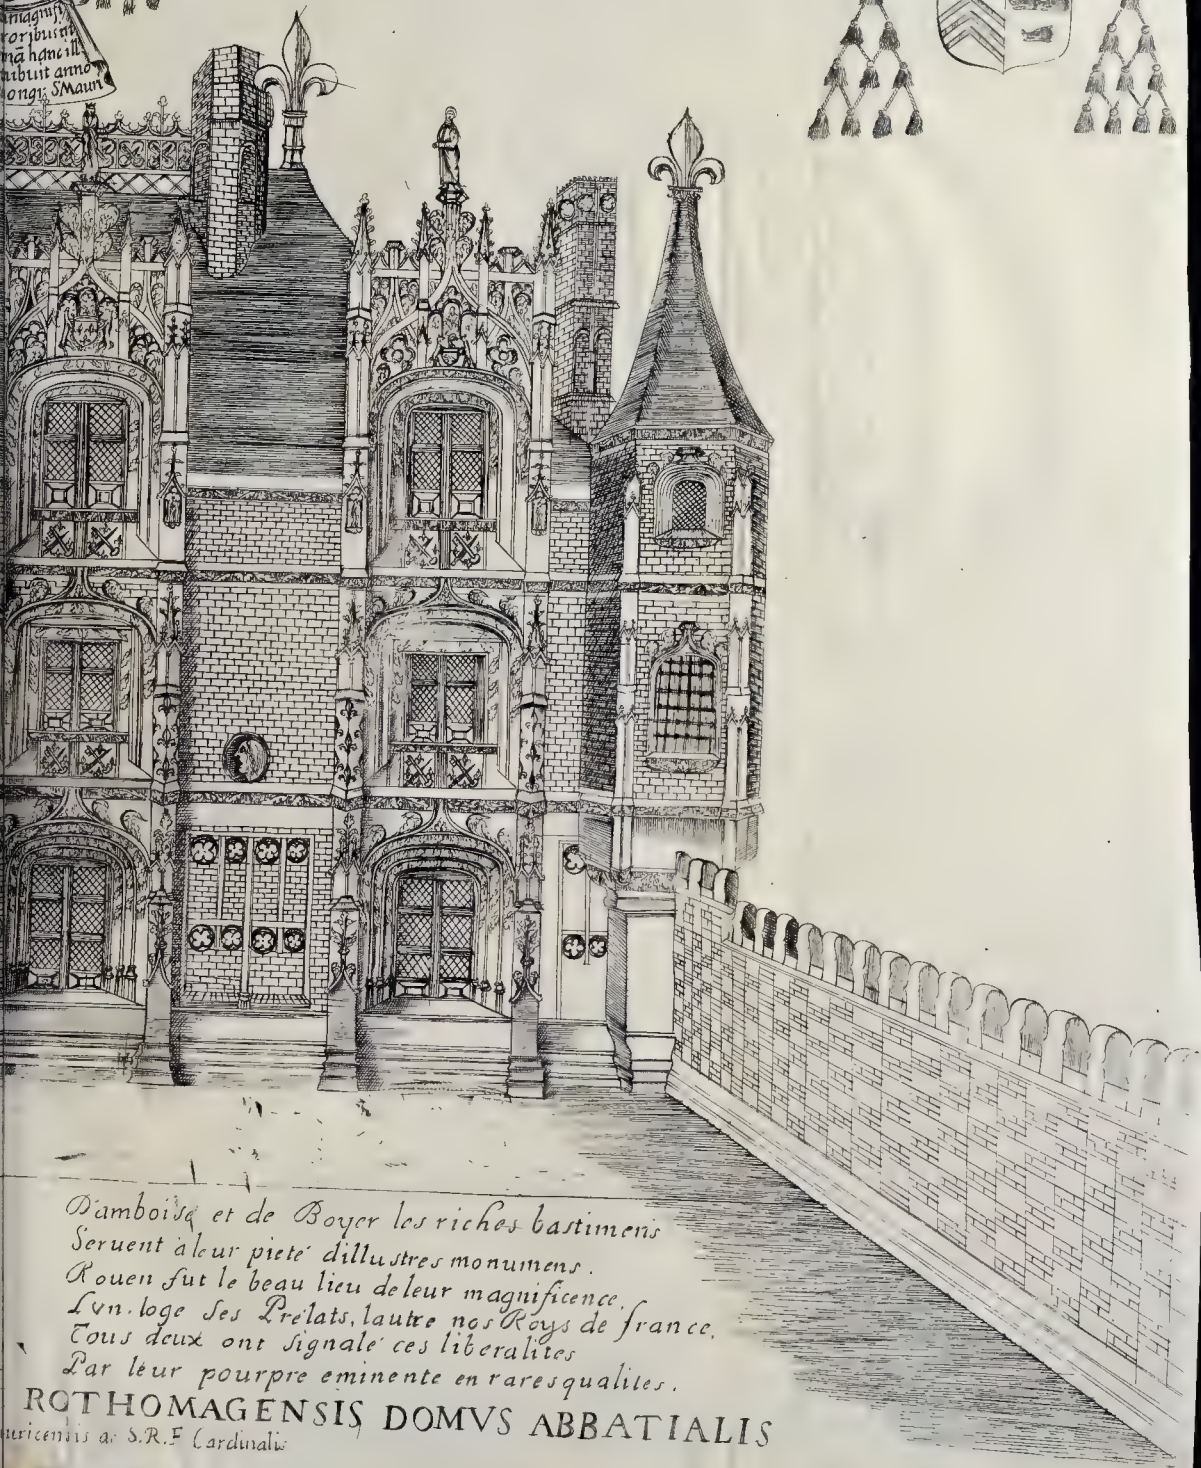 oribus
hanc ill
ribuit anno
ongr. SMauri
D'amboise et de Boyer les riches bastimens
Seruent a leur pieté dillustres monumens.
Rouen fut le beau lieu de leur magnificence,
Lvn. loge Ses Prélats, lautre nos Roys de france,
Tous deux ont signalé ces liberalites
Par leur pourpre eminente en rares qualites.
ROTHOMAGENSIS DOMVS ABBATIALIS
uricensis ac S.R.E Cardinalis